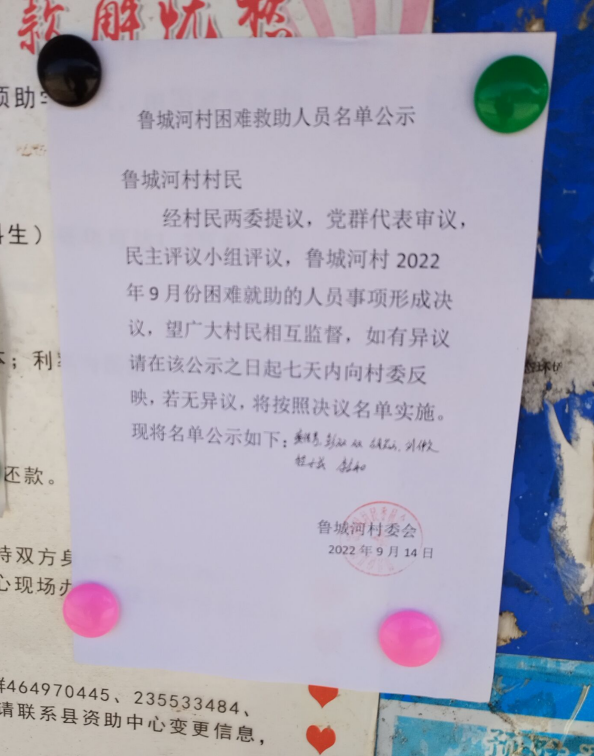 款解忧愁
鲁城河村困难救助人员名单公示
鲁城河村村民
经村民两委提议，党群代表审议，
民主评议小组评议，鲁城河村 2022
年 9 月份困难就助的人员事项形成决
议，望广大村民相互监督，如有异议
请在该公示之日起七天内向村委反
映，若无异议，将按照决议名单实施。
现将名单公示如下：
鲁城河村委会
2022 年 9 月 14 日
还款。
持双方身
心现场办
群464970445、235533484、
请联系县资助中心变更信息，